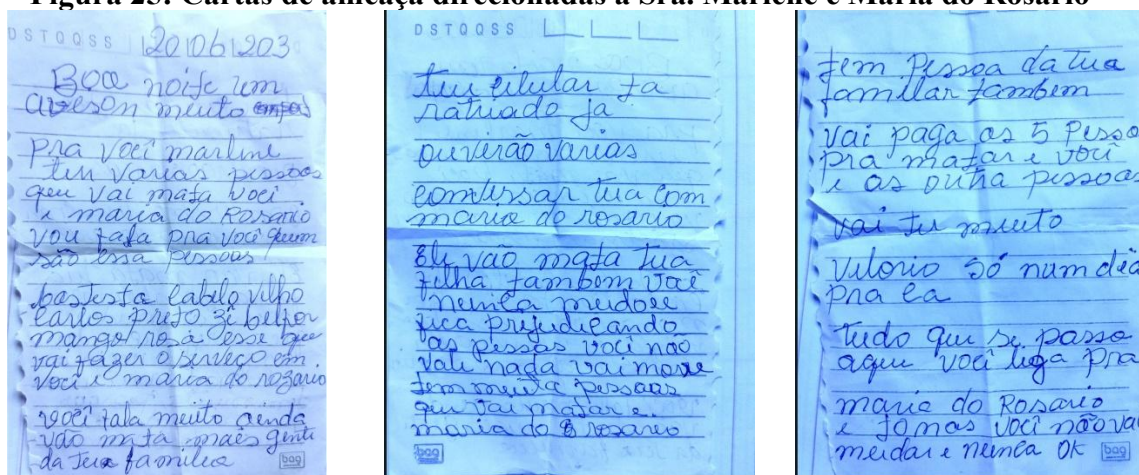 Figura 25: Cartas de ameaça direcionadas a Sra. Marlene e Maria do Rosário
D S T Q Q S S 20 06 203
Boa noite um
aveson meuto
pra voci marlene
ten varias pessoas
que vai mata voci
e maria do Rosario
vou fala pra você quem
são essa pessoas
bastesta cabelo vilho
Carlos preto zé belfor
mango rosa esse que
vai fazer o serveço em
voci e maria do rozario
você fala meuto ainda
vão mata mais gente
da teua familea
bag
D S T Q Q S S
teu cilular ta
ratriado ja
ouverão varias
comversar tua com
maria do rosario
Ele vão mata tua
filha tambem você
nunca mudore
fica prejudicando
as pessoas você não
vale nada vai morre
tem meuita pessoas
que vai matar e
maria do rosario
bag
tem Pessoa da tua
familar tambem
vai paga as 5 Pesso
pra matar e você
e as outra pessoas
vai ter meuto
Vilorio só num dia
pra ca
tudo que se passa
aqui você liga pra
maria do Rosario
e tomas você não vai
meudar e nunca OK
bag